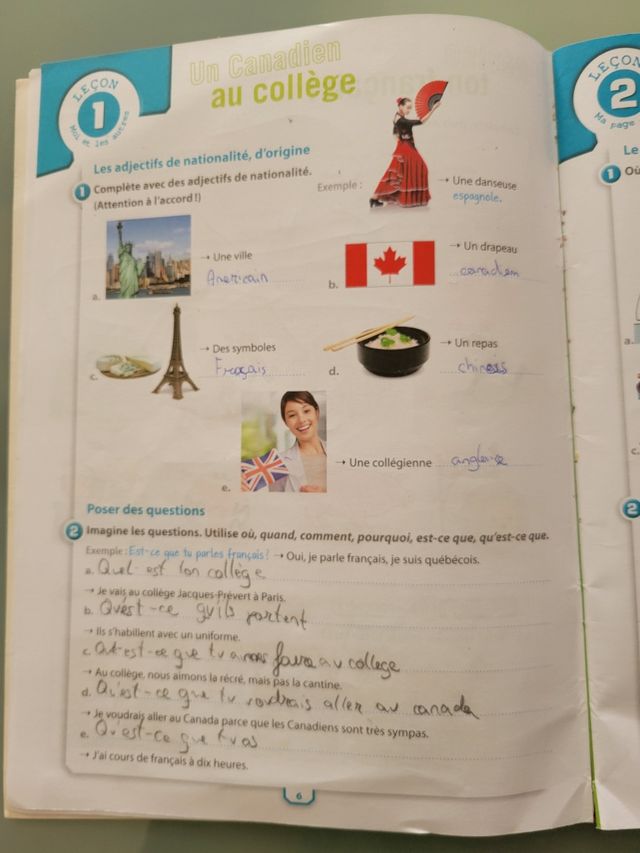 LEÇON
1
Moi et les autres
Un Canadien
au collège
LEÇON
2
Ma page
Les adjectifs de nationalité, d'origine
1 Complète avec des adjectifs de nationalité.
(Attention à l'accord !)
Exemple :
→ Une danseuse
espagnole.
→ Une ville
Americain
a.
→ Un drapeau
canadien
b.
→ Des symboles
Français
c.
→ Un repas
chinois
d.
→ Une collégienne anglaise
e.
Poser des questions
2 Imagine les questions. Utilise où, quand, comment, pourquoi, est-ce que, qu'est-ce que.
Exemple : Est-ce que tu parles français ? → Oui, je parle français, je suis québécois.
a. Quel est ton collège
→ Je vais au collège Jacques-Prévert à Paris.
b. Quést-ce qu'ils portent
→ Ils s'habillent avec un uniforme.
c. est-ce que tu aimes faire au college
→ Au collège, nous aimons la récré, mais pas la cantine.
d. Qu'est-ce que tu voudrais aller au canada
→ Je voudrais aller au Canada parce que les Canadiens sont très sympas.
e. Qu'est-ce que tu as
→ J'ai cours de français à dix heures.
6
Le
1 Où
a.
c.
2